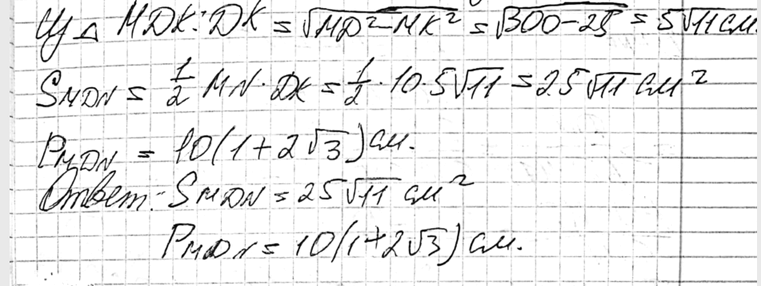 Из △ MDK: DK = √MD² - MK² = √300-25 = 5√11 см.
S MDN = 1/2 MN · DK = 1/2 · 10 · 5√11 = 25√11 см²
P MDN = 10(1+2√3) см.
Ответ: S MDN = 25√11 см²
P MDN = 10(1+2√3) см.